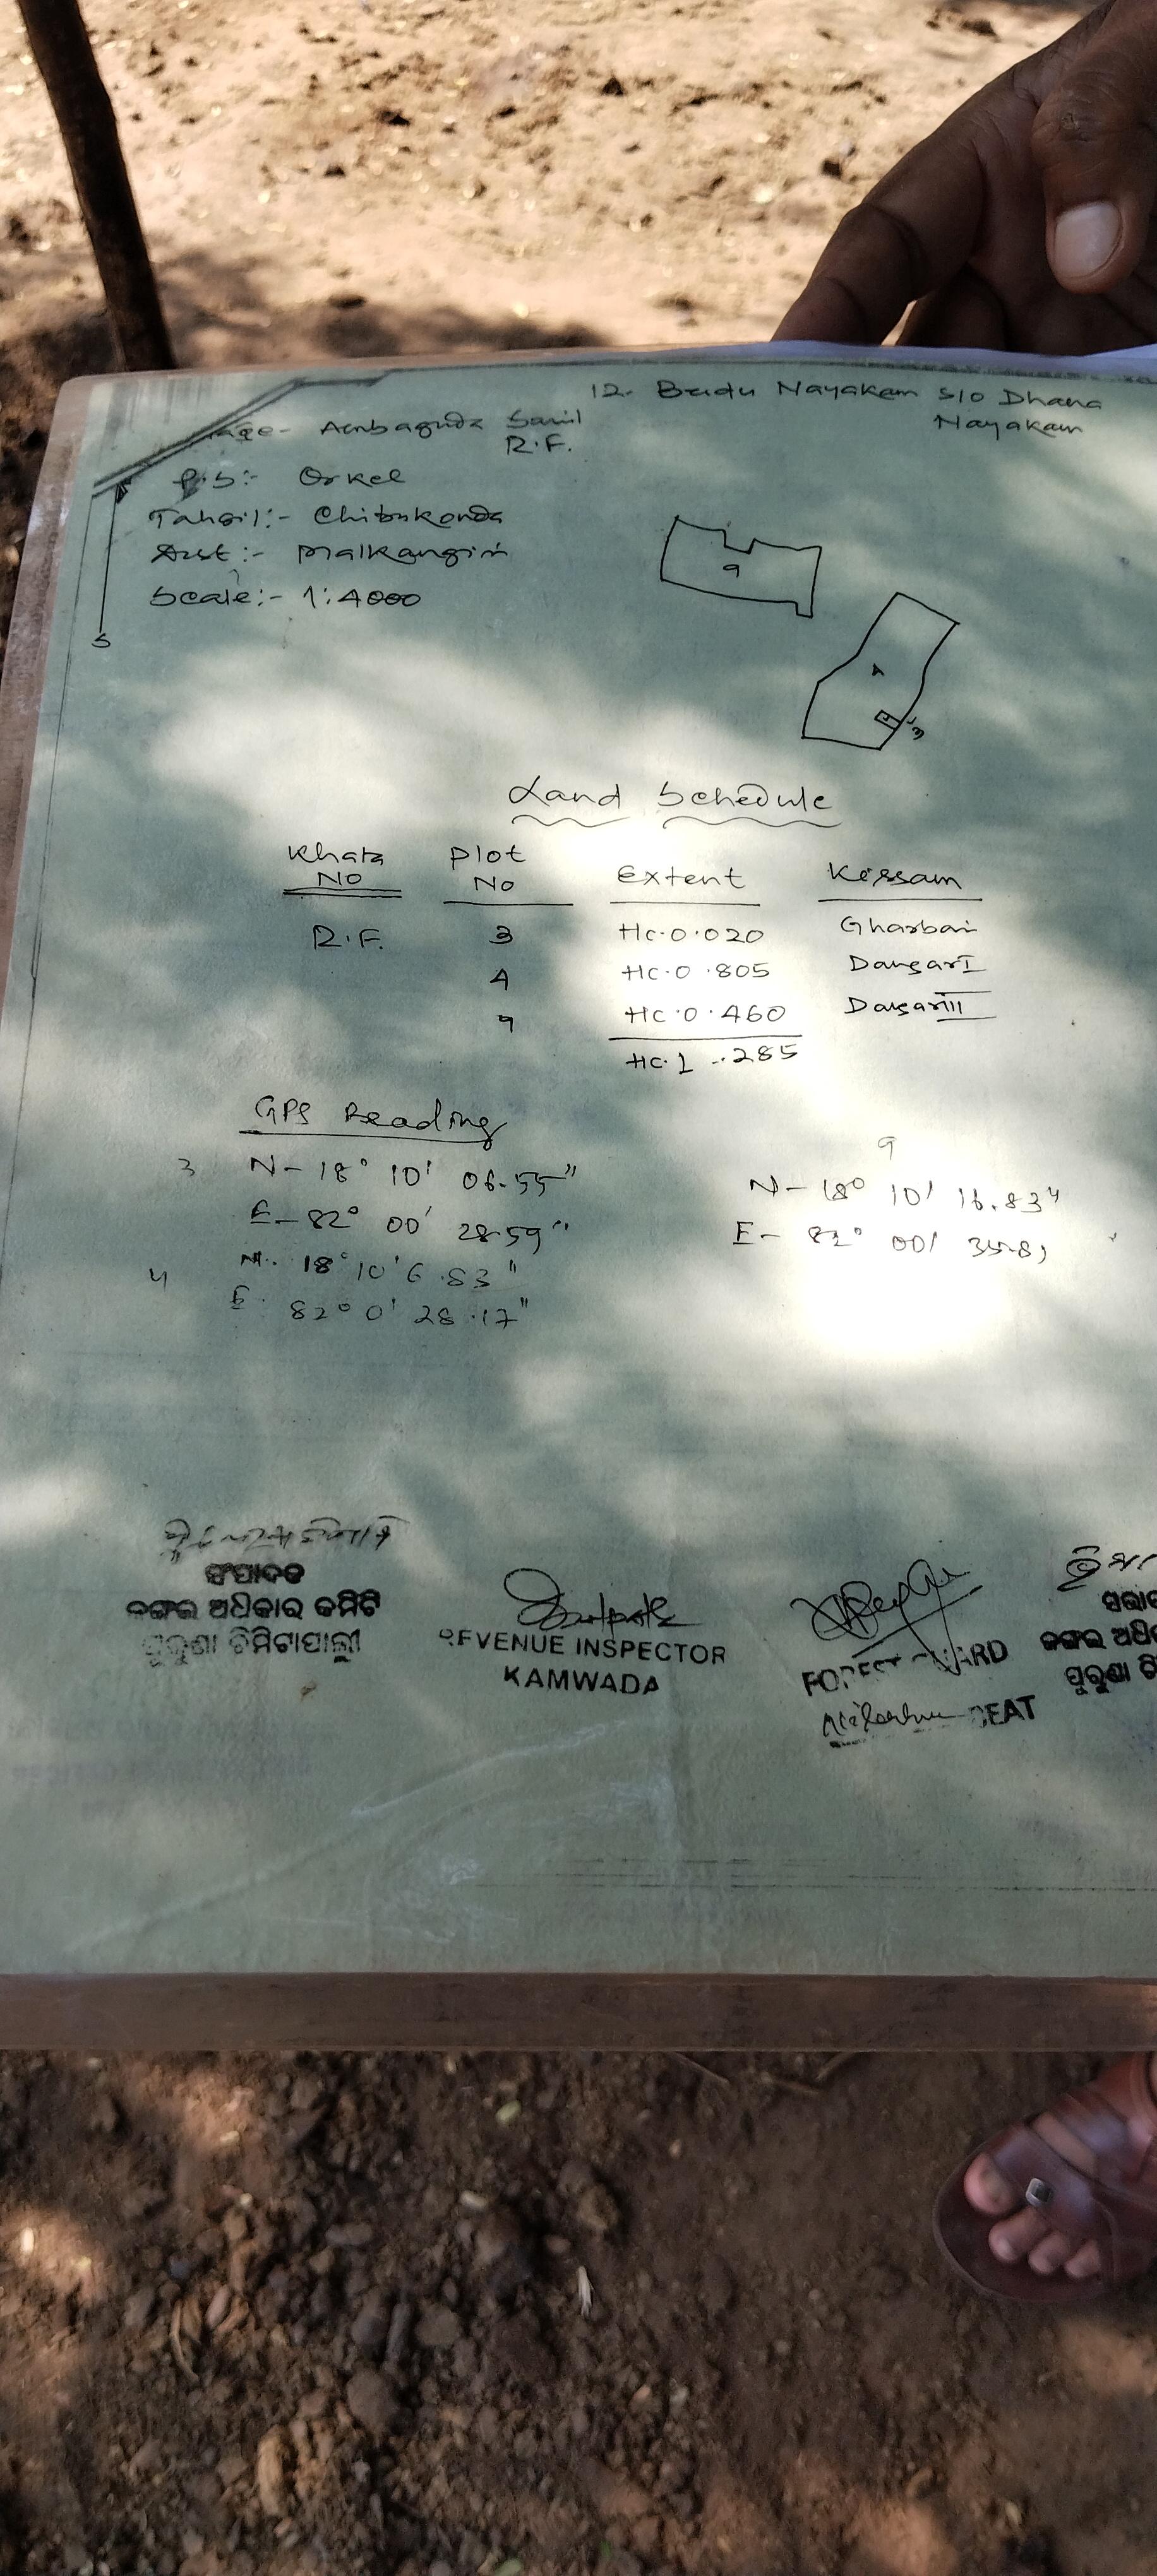 12. Budu Nayakam S/o Dhana
Nayakam
Ambaguda Sanil
R.F.
P.S:- Orkel
Tahsil:- Chitrakonda
Dist:- Malkangiri
Scale:- 1:4000
S
9
4
3
Land Schedule
Khata No Plot No Extent Kissam
R.F. 3 Hc.0.020 Gharbari
4 Hc.0.805 Dangar I
9 Hc.0.460 Dangar III
Hc.1.285
GPS Reading
3 N- 18° 10' 06.55"
E- 82° 00' 28.59"
4 N. 18° 10' 6.83"
E. 82° 0' 28.17"
9
N- 18° 10' 16.83"
E- 82° 00' 35.81
ସଂପାଦକ
ଜଙ୍ଗଲ ଅଧିକାର କମିଟି
ପୁରୁଣା ଚିମିଟାପାଲ୍ଲୀ
REVENUE INSPECTOR
KAMWADA
FOREST GUARD
BEAT
ଜଙ୍ଗଲ ଅଧି
ପୁରୁଣା ଚି